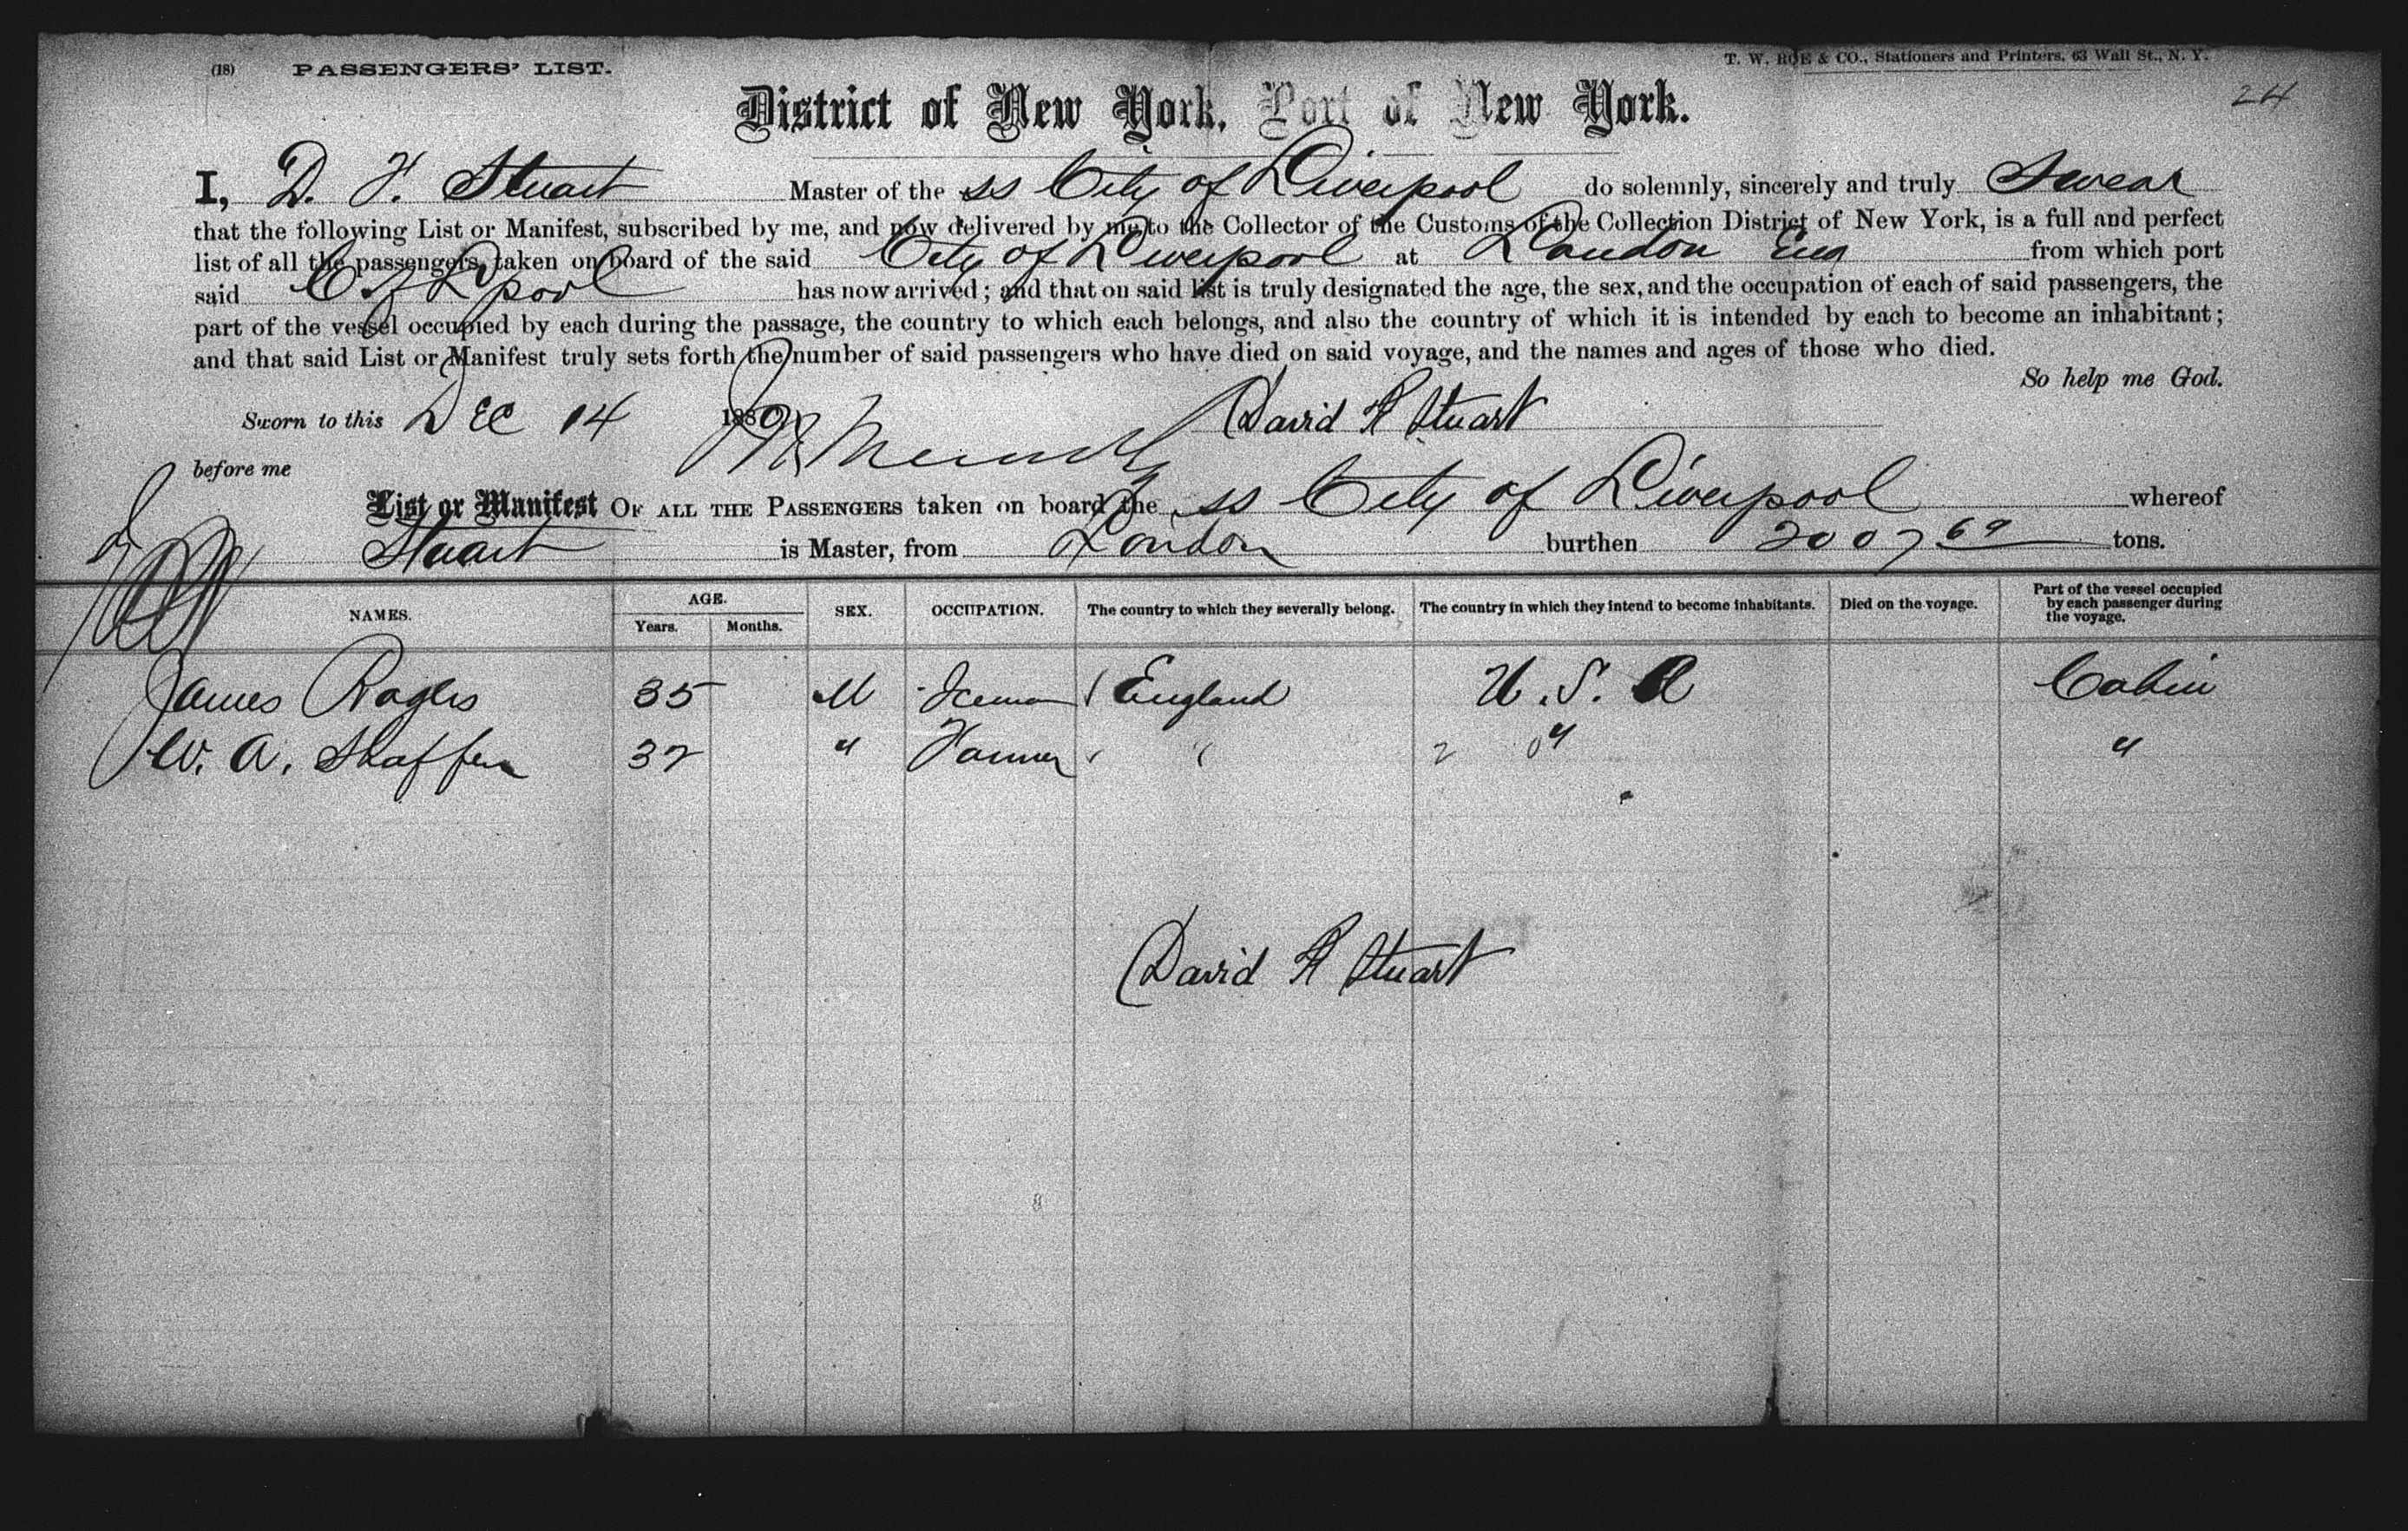 (18) PASSENGERS' LIST.
T. W. ROE & CO., Stationers and Printers, 63 Wall St., N. Y.
24
District of New York, Port of New York.
I, D. F. Stuart Master of the ss City of Liverpool do solemnly, sincerely and truly Swear
that the following List or Manifest, subscribed by me, and now delivered by me to the Collector of the Customs of the Collection District of New York, is a full and perfect
list of all the passengers taken on board of the said City of Liverpool at London Eng from which port
said C of Lpool has now arrived; and that on said list is truly designated the age, the sex, and the occupation of each of said passengers, the
part of the vessel occupied by each during the passage, the country to which each belongs, and also the country of which it is intended by each to become an inhabitant;
and that said List or Manifest truly sets forth the number of said passengers who have died on said voyage, and the names and ages of those who died.
So help me God.
Sworn to this Dec 14 1880 David R Stuart
before me
List or Manifest OF ALL THE PASSENGERS taken on board the ss City of Liverpool whereof
Stuart is Master, from London burthen 2007 69 tons.
NAMES. AGE. Years. Months. SEX. OCCUPATION. The country to which they severally belong. The country in which they intend to become inhabitants. Died on the voyage. Part of the vessel occupied by each passenger during the voyage.
James Rogers 35 M England U. S. A Cabin
W. A. Shaffer 32 " Farmer " " "
David R Stuart